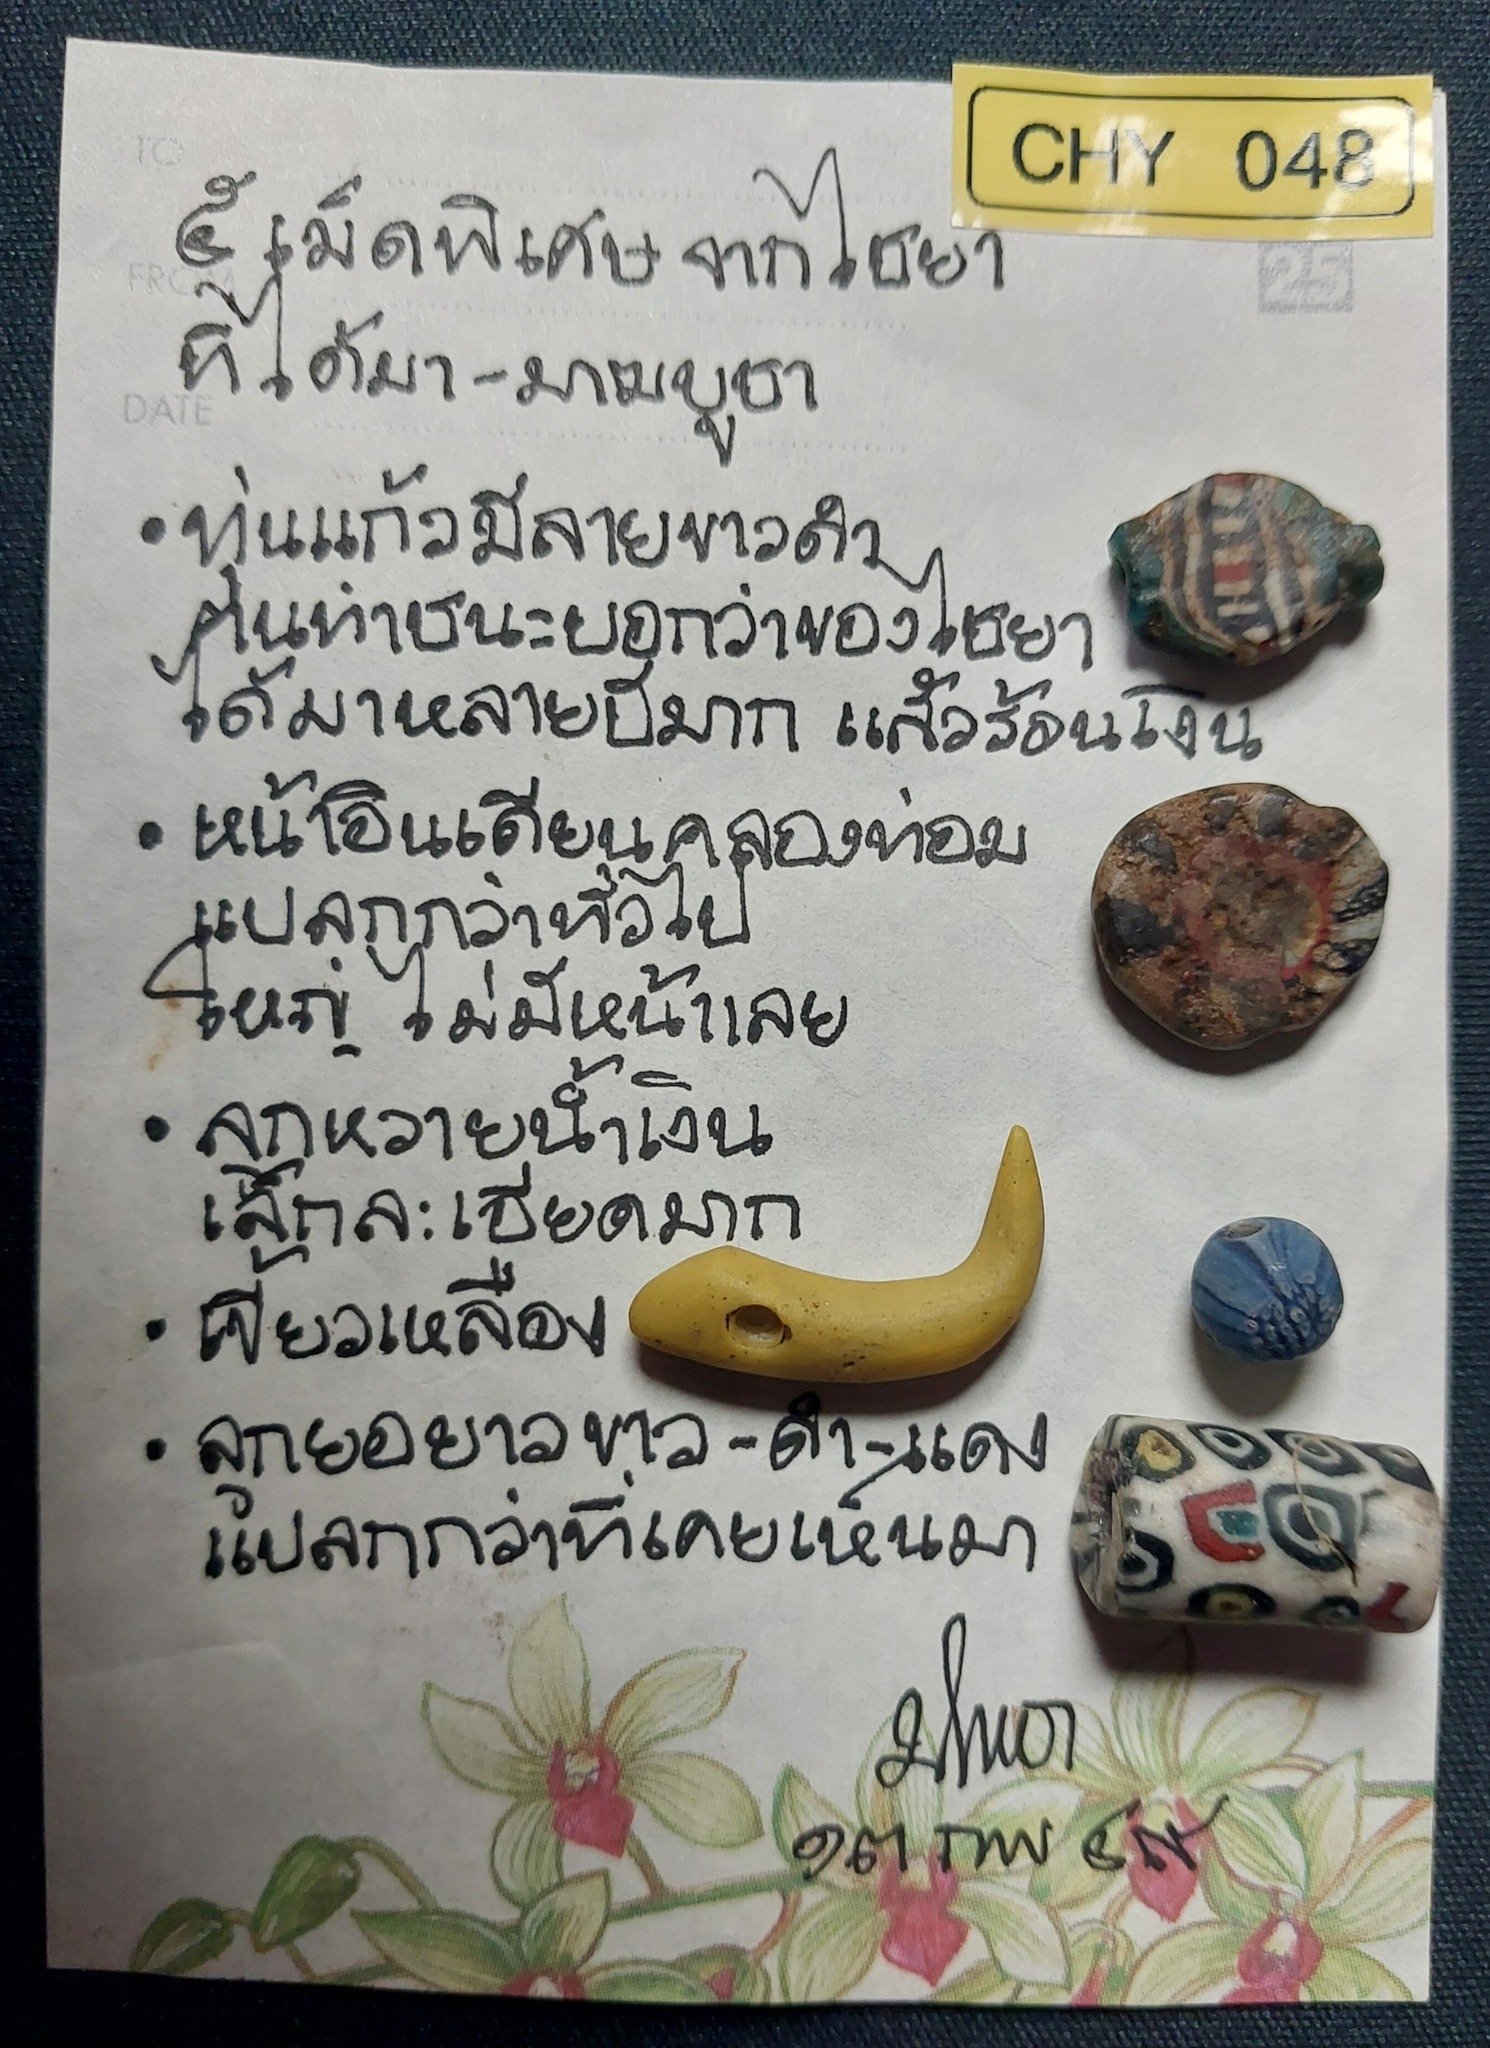 CHY 048
TO
FROM
DATE
๕ เม็ดพิเศษ จากไชยา
ที่ได้มา - มาฆบูชา
• ทุ่นแก้วมีลายขาวดำ
ตุ่นทำชนะบอกว่าของไชยา
ได้มาหลายปีมาก แล้วร้อนเงิน
• หน้าอินเดียนคลองท่อม
แปลกกว่าทั่วไป
ใหญ่ ไม่มีหน้าเลย
• ลูกหวายน้ำเงิน
เล็กละเอียดมาก
• เขี้ยวเหลือง
• ลูกยอยาวขาว-ดำ-แดง
แปลกกว่าที่เคยเห็นมา
๑๓ กพ ๔๙